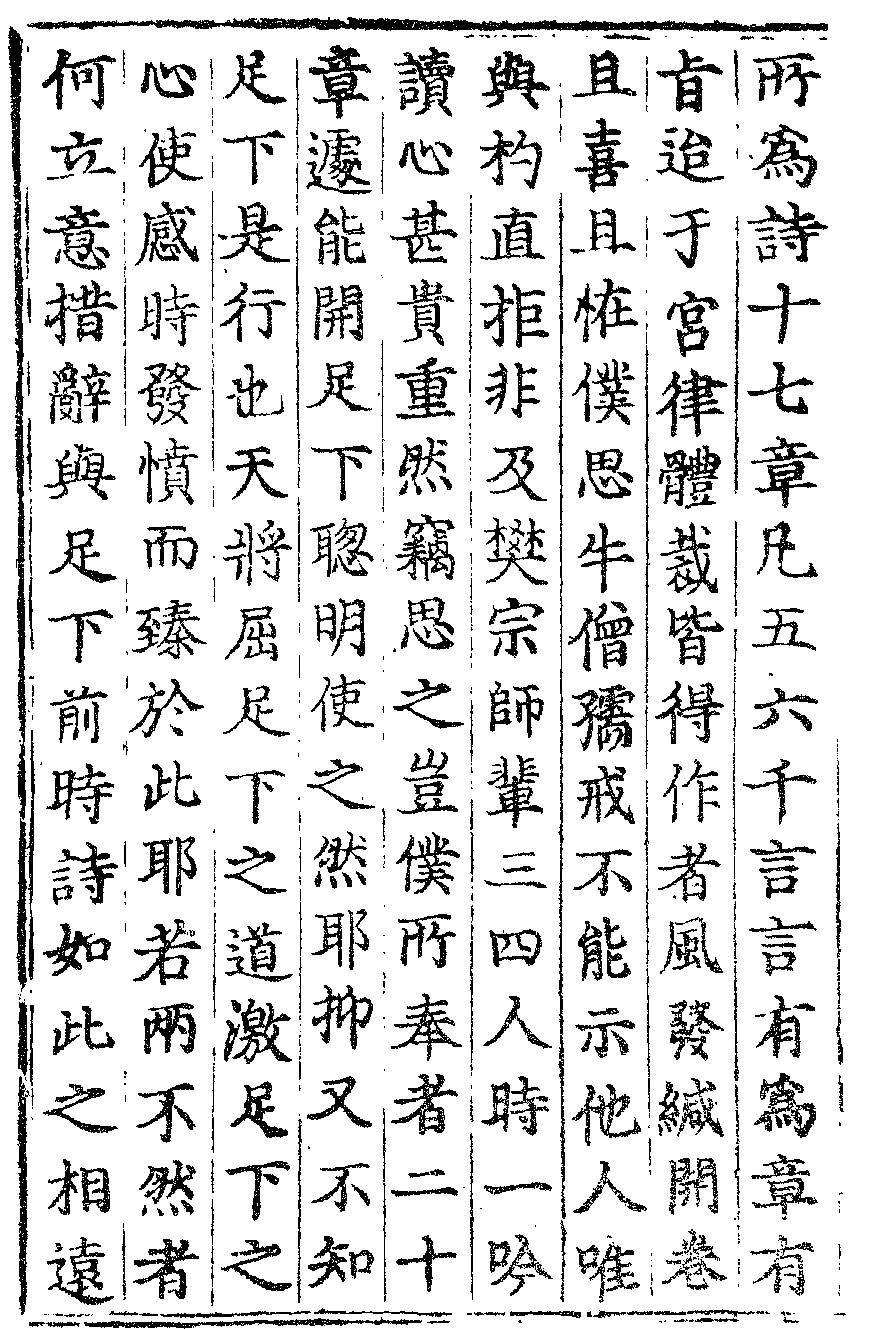 所爲詩十七章凡五六千言言有爲章有
㫖迨于宮律體裁皆得作者風發緘開卷
且喜且恠僕思牛僧孺戒不能示他人唯
與杓直拒非及樊宗師輩三四人時一吟
讀心甚貴重然竊思之豈僕所奉者二十
章遽能開足下聦明使之然耶抑又不知
足下是行也天將屈足下之道激足下之
心使感時發憤而臻於此耶若兩不然者
何立意措辭與足下前時詩如此之相遠